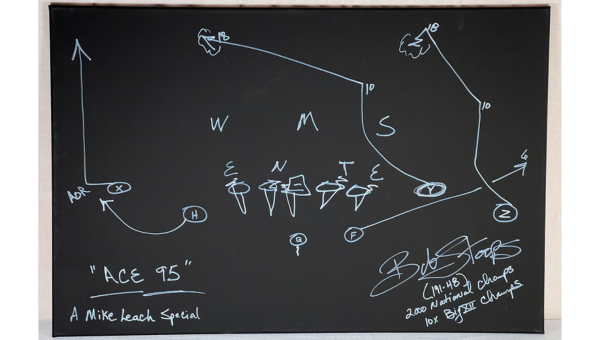 18
18
10
10
W M S
E N T E
6
ADR X
Y
H
Z
Q
F
"ACE 95"
A Mike Leach Special
Bob Stoops
(191-48)
2000 National Champs
10x Big XII Champs